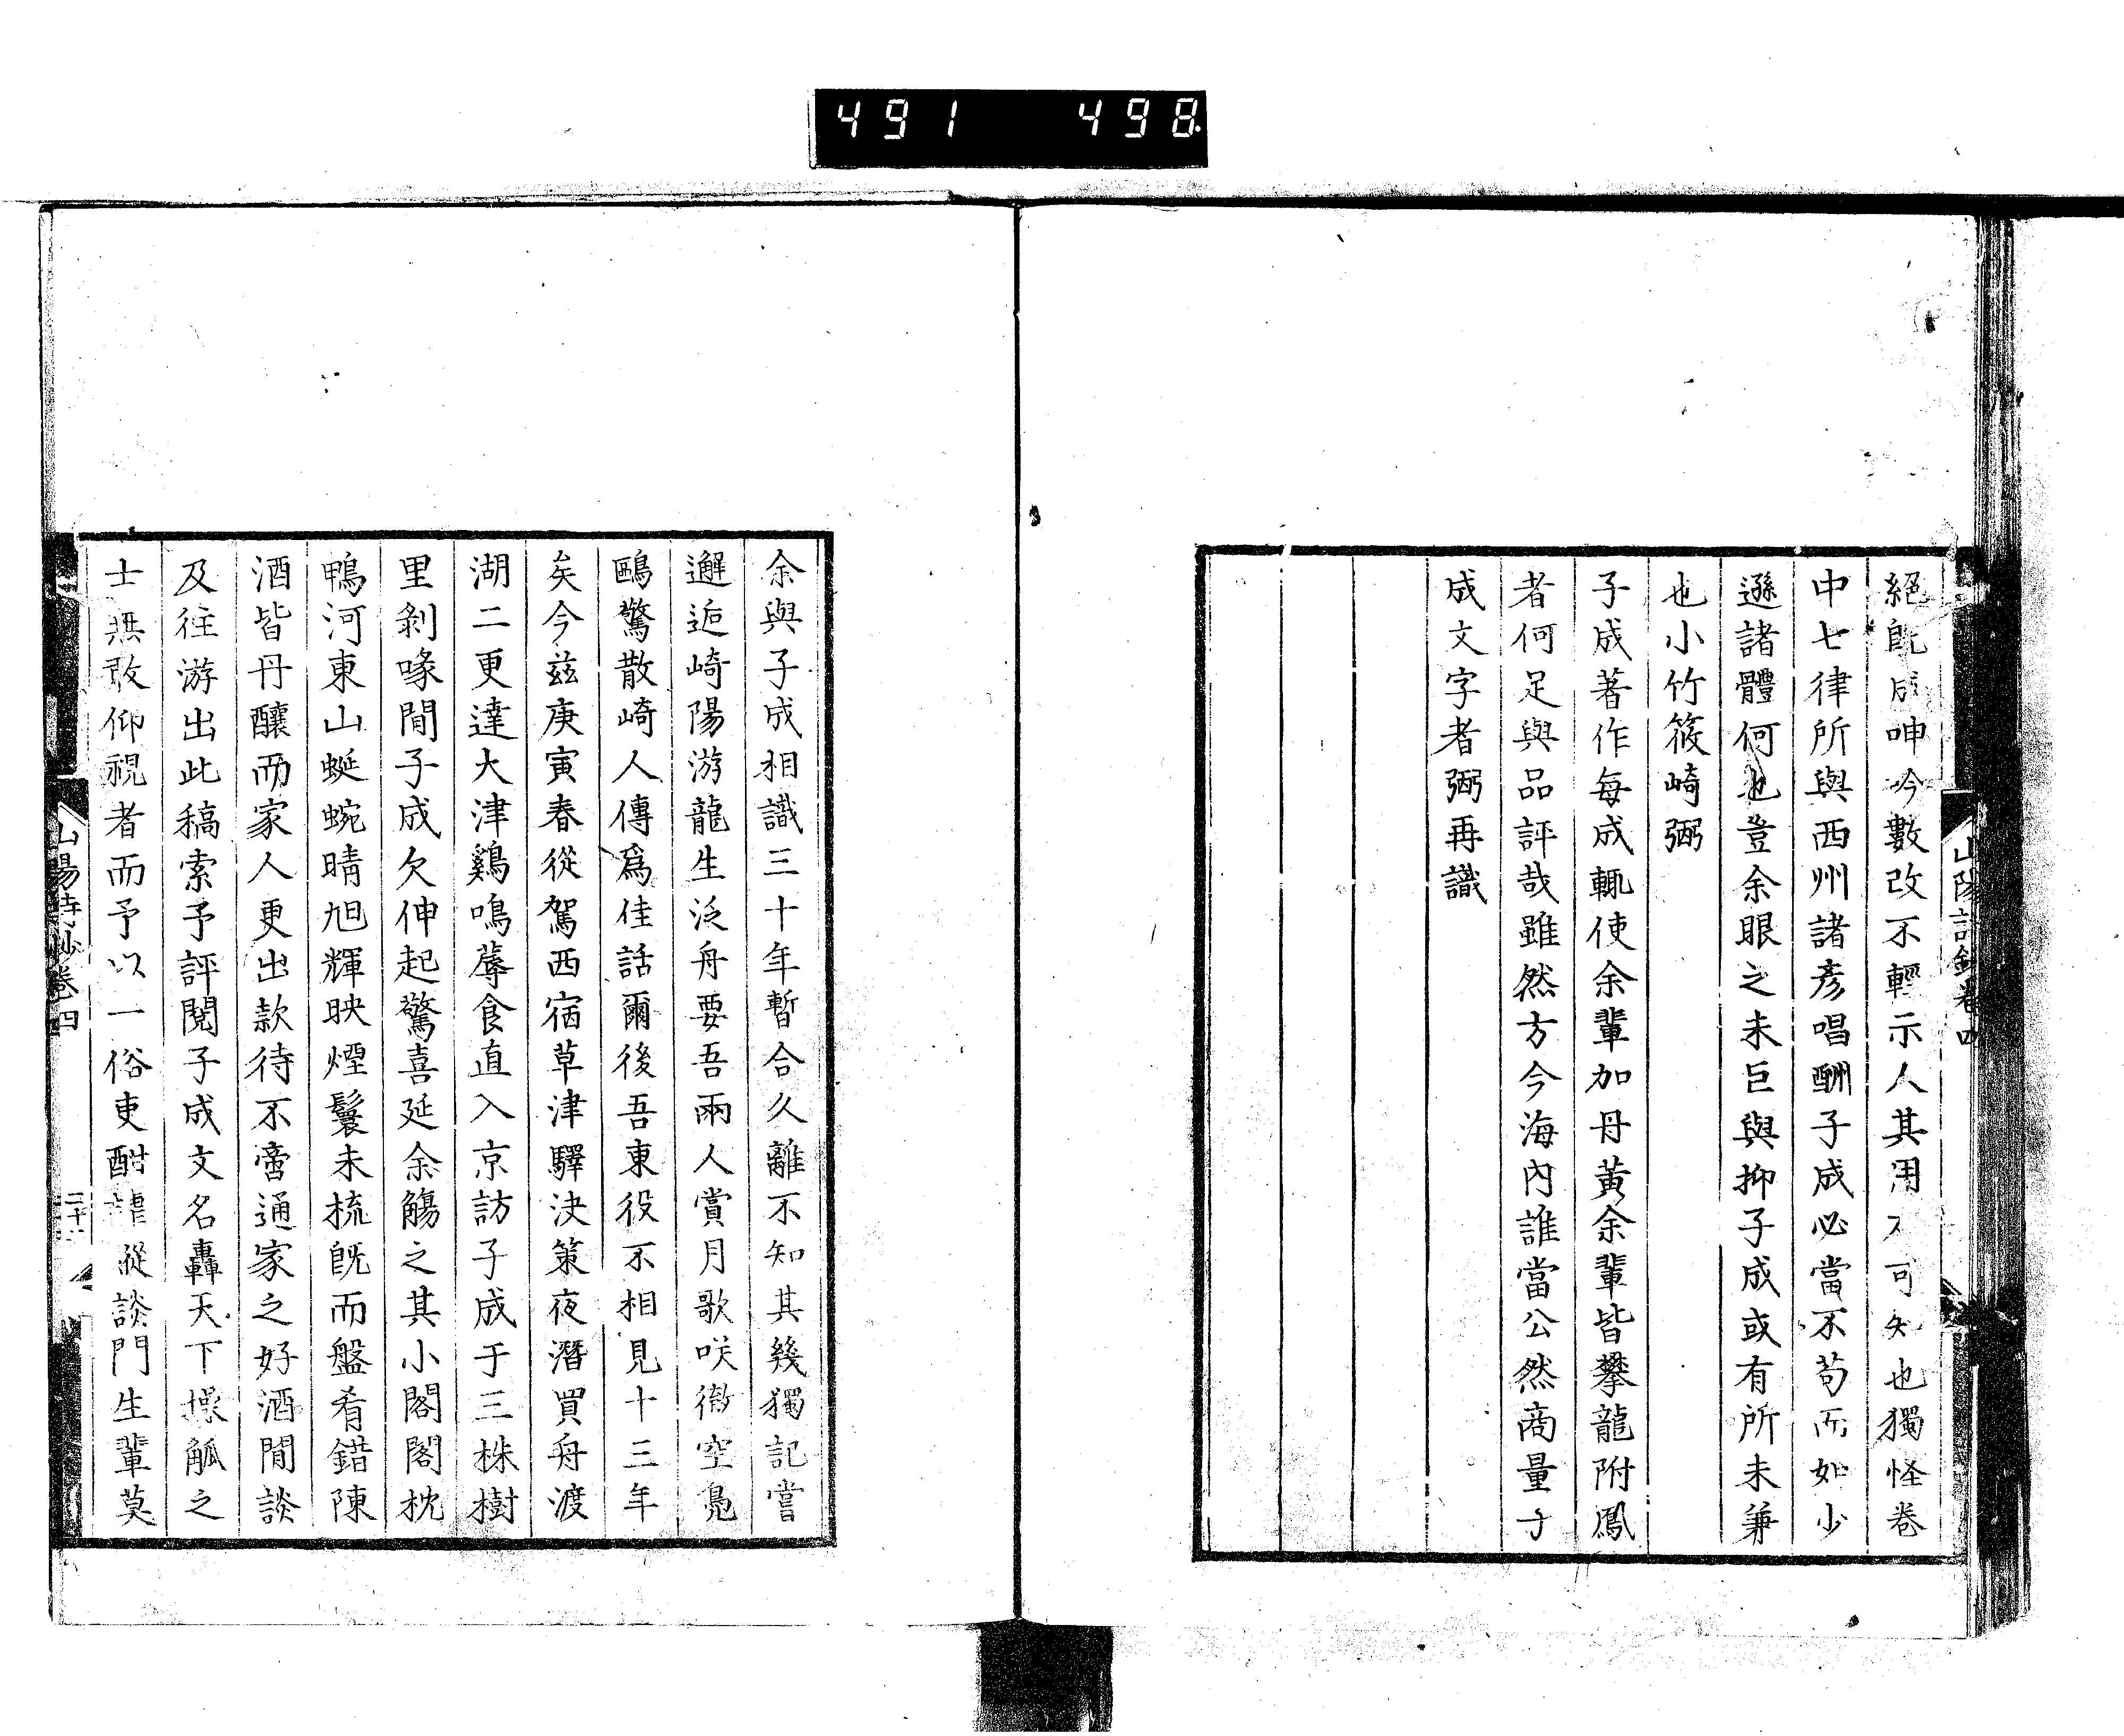 491 498
山陽詩鈔卷四
絕既成呻吟數改不輕示人其用不可知也獨怪卷
中七律所與西州諸彥唱酬子成必當不苟而如少
遜諸體何也豈余眼之未巨與抑子成或有所未兼
也小竹筱崎弼
子成著作每成輒使余輩加丹黃余輩皆攀龍附鳳
者何足與品評哉雖然方今海內誰當公然商量子
成文字者弼再識
余與子成相識三十年暫合久離不知其幾獨記嘗
邂逅崎陽游龍生泛舟要吾兩人賞月歌咲徹空鳧
鷗驚散崎人傳爲佳話爾後吾東役不相見十三年
矣今茲庚寅春從駕西宿草津驛決策夜潛買舟渡
湖二更達大津鷄鳴蓐食直入京訪子成于三株樹
里剝啄間子成欠伸起驚喜延余觴之其小閣閣枕
鴨河東山蜒蜿晴旭輝映煙鬟未梳既而盤肴錯陳
酒皆丹釀而家人更出款待不啻通家之好酒間談
及往游出此稿索予評閱子成文名轟天下操觚之
士無敢仰視者而予以一俗吏酣謔縱談門生輩莫
山陽詩鈔卷四